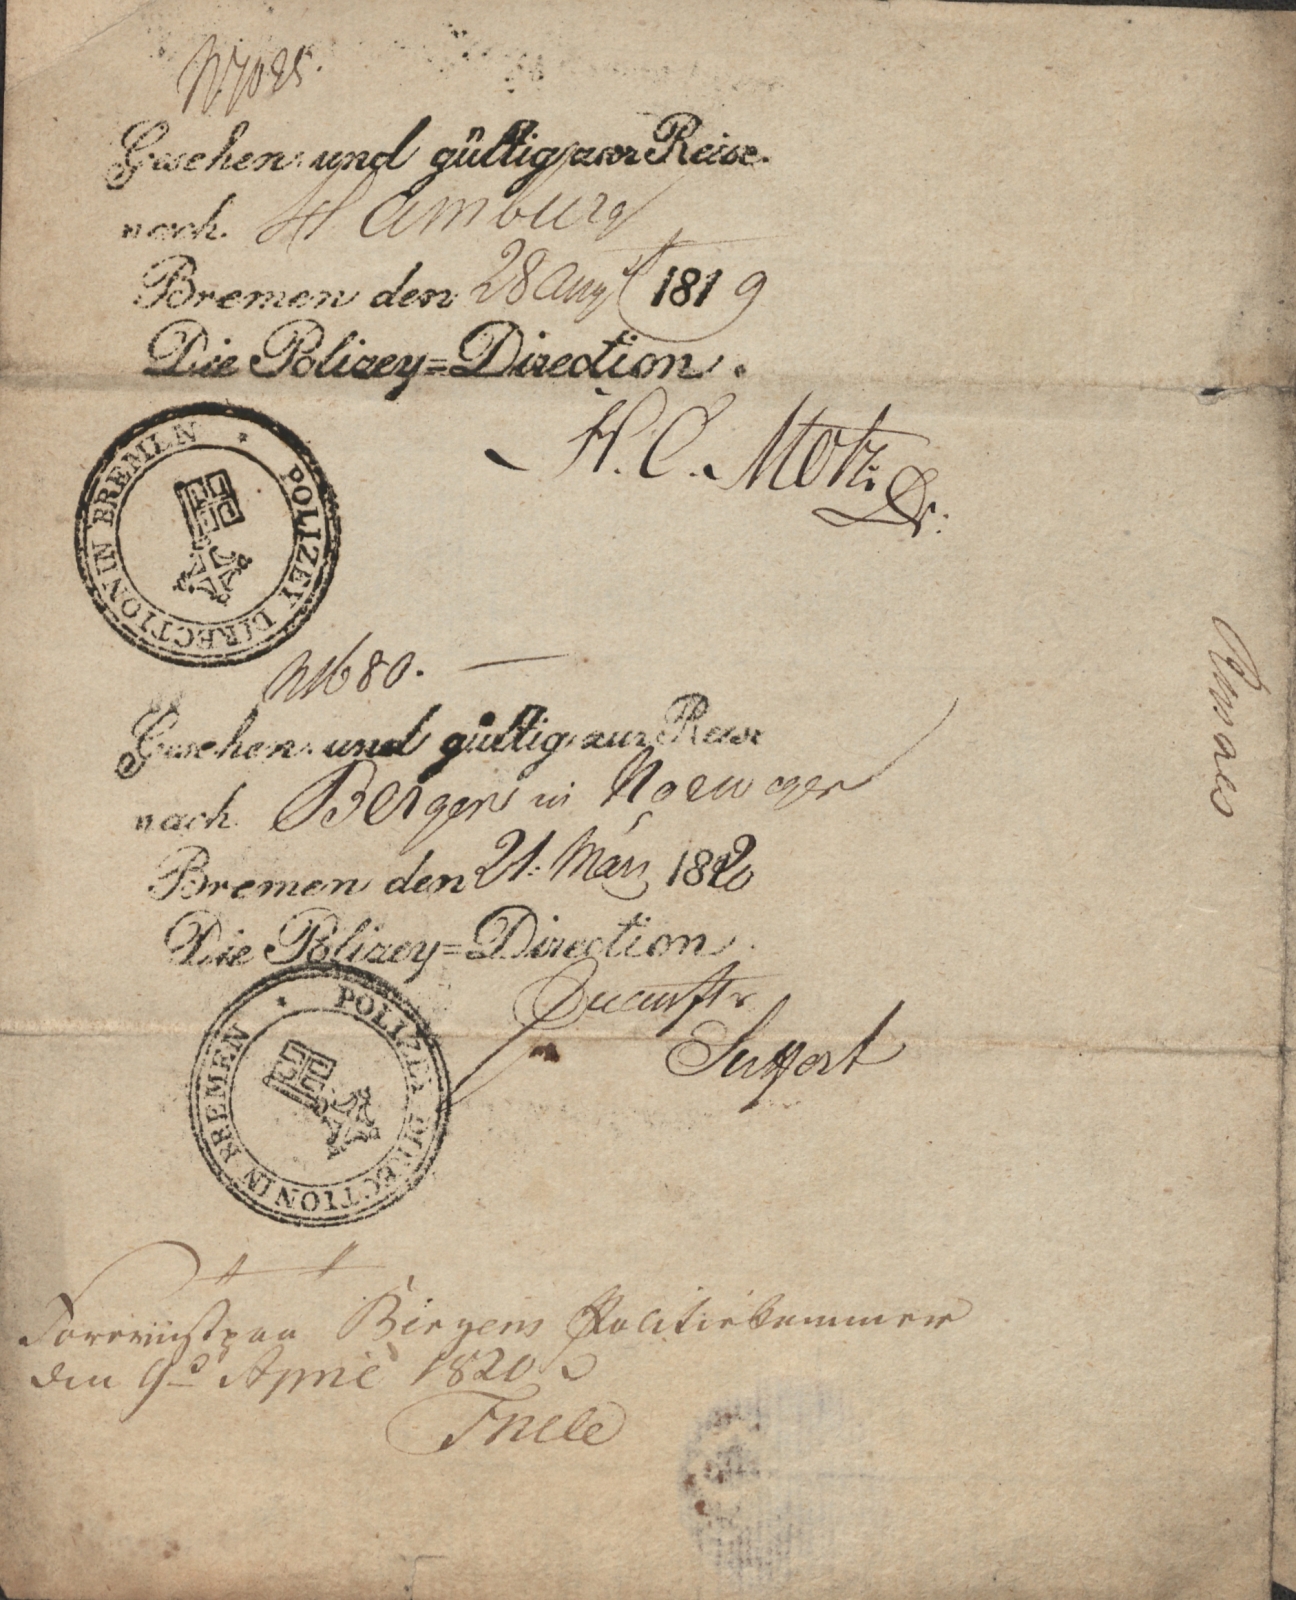 N 7025.
Gesehen und gültig zur Reise
nach Hamburg
Bremen den 28 Augt 1819
Die Polizey=Direction.
H. C. Motz Dr:
POLIZEY DIRECTION IN BREMEN *
N 1680.
Gesehen und gültig zur Reise
nach Bergen in Norwegen
Bremen den 21. März 1820
Die Polizey=Direction
POLIZEY DIRECTION IN BREMEN *
Foreviist paa Bergens Politiekammer
den 9de April 1820